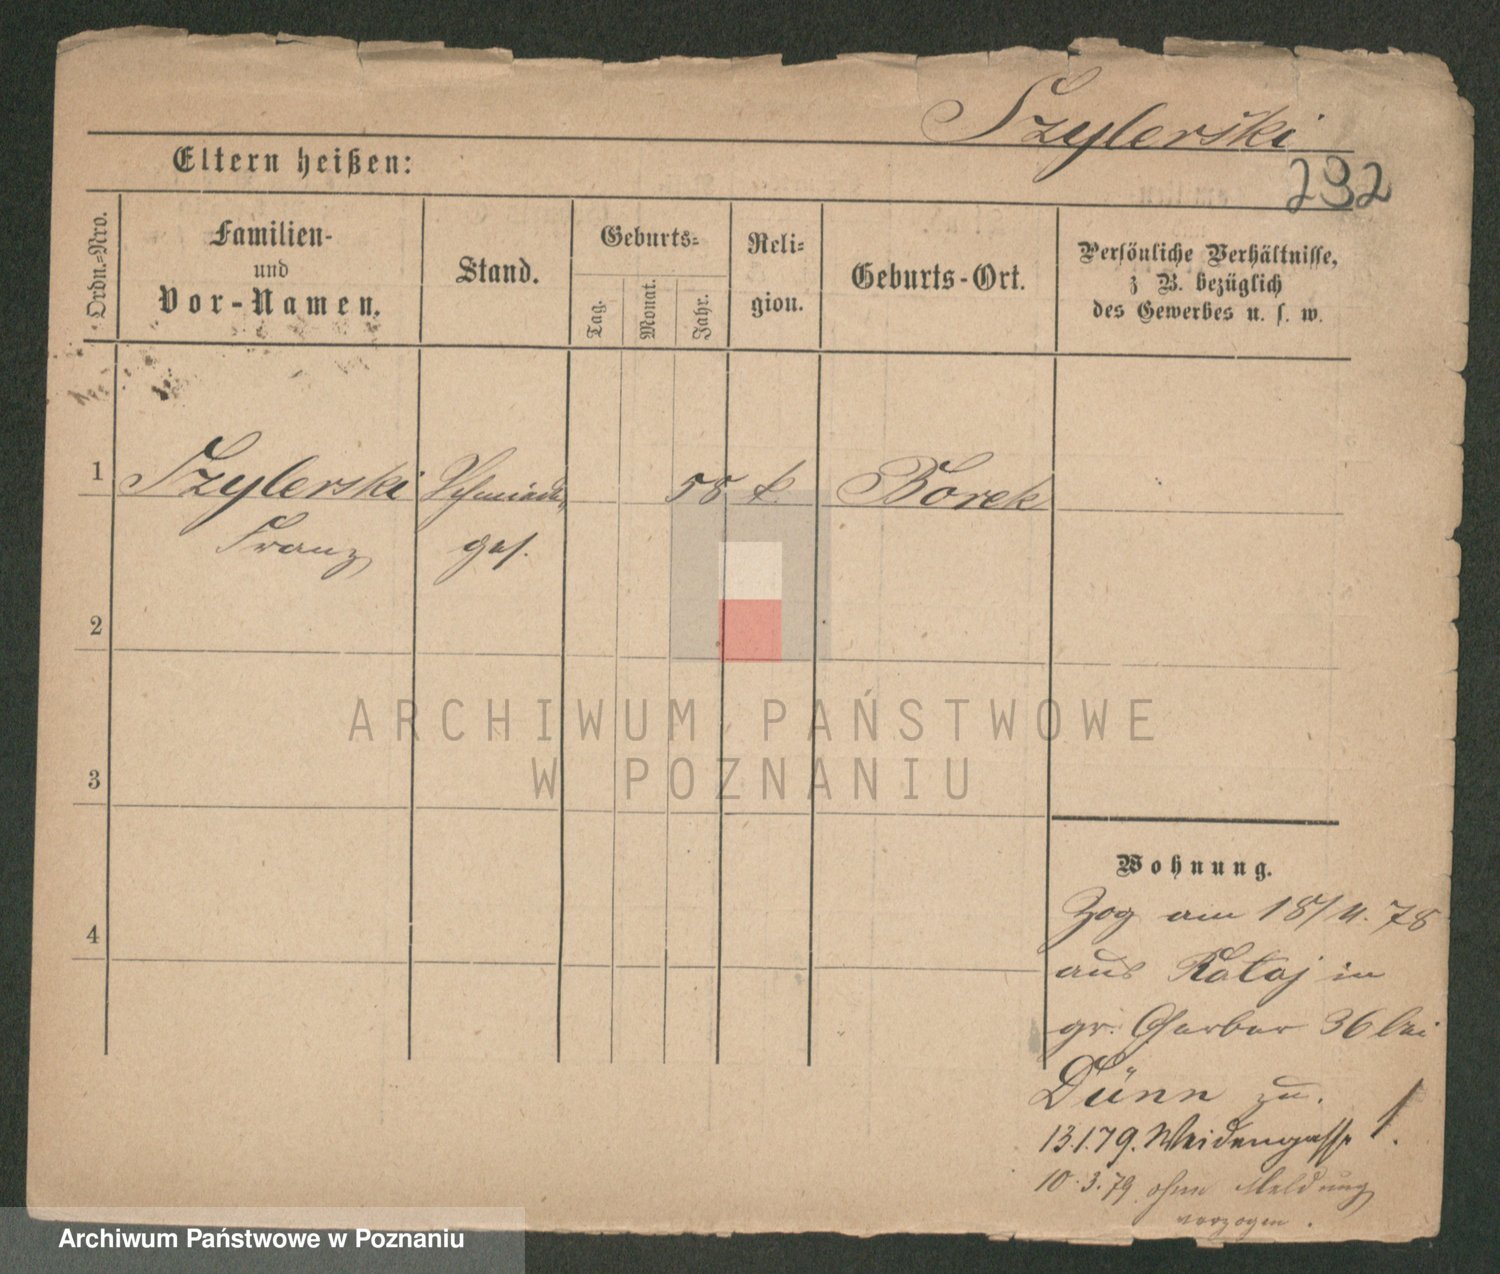 Szylerski
232
Eltern heißen:
Ordn.-Nro.
Familien-
und
Vor-Namen.
Stand.
Geburts-
Tag.
Monat.
Jahr.
Reli-
gion.
Geburts-Ort.
Persönliche Verhältnisse,
z B. bezüglich
des Gewerbes u. s. w.
1 Szylerski Schmiede 58 k. Borek
Franz ges.
2
3
4
ARCHIWUM PAŃSTWOWE
W POZNANIU
Wohnung.
Zog am 18/4. 78
aus Rataj in
gr. Gerber 36 bei
Dünn zu.
13.1.79. Weidengasse 1.
10.3.79 ohne Meldung
verzogen.
Archiwum Państwowe w Poznaniu